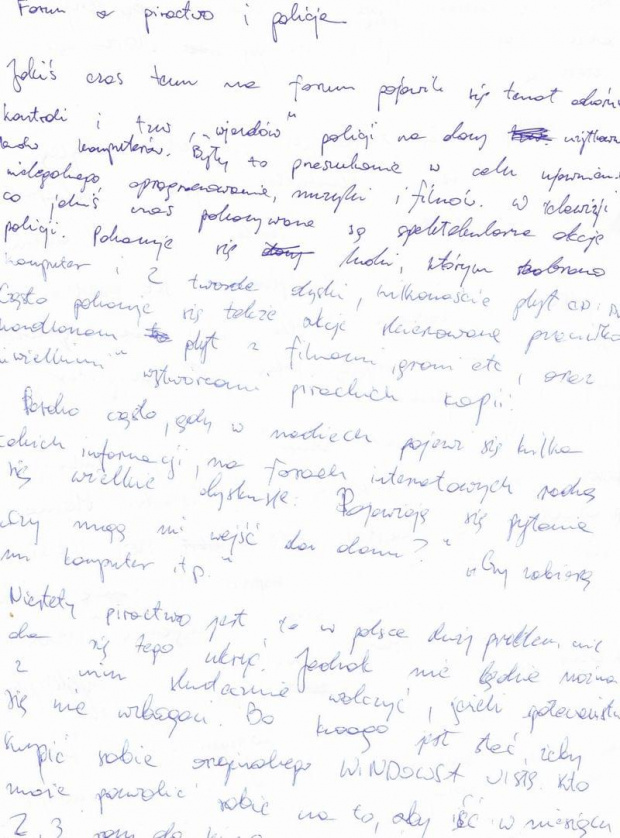 Forum a piractwo i policja
Jakiś czas temu na forum pojawił się temat
kontroli i tzw. „wjazdów” policji na domy
komputerów. Były to przeszukania w celu
nielegalnego oprogramowania, muzyki i filmów. W telewizji
co jakiś czas pokazywane są spektakularne akcje
policji. Pokazuje się ludzi, którym zabrano
komputer i 2 twarde dyski, kilkanaście płyt CD i
Często pokazuje się także akcje skierowane przeciwko
handlarzom płyt z filmami, grami etc, oraz
„wielkim” wytwórcami pirackich kopii.
Bardzo często, gdy w mediach pojawi się kilka
takich informacji, na forach internetowych
się wielkie dyskusje. Pojawiają się pytania
„Czy mogą mi wejść do domu?” „Czy zabiorą
mi komputer itp.”
Niestety piractwo jest, to w polsce duży problem, nie
da się tego ukryć. Jednak nie będzie można
z nim skutecznie walczyć, jeżeli społeczeństwo
się nie wzbogaci. Bo kogo jest stać, żeby
kupić sobie oryginalnego WINDOWSA VISTĘ. Kto
może pozwolić sobie na to, aby iść w miesiącu
2, 3 razy do